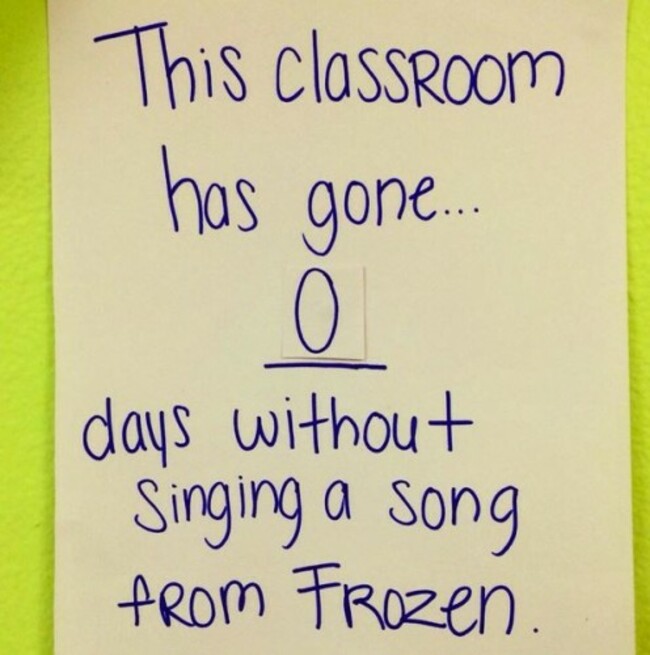 This classRoom
has gone...
0
days without
singing a song
fRom FRozen.